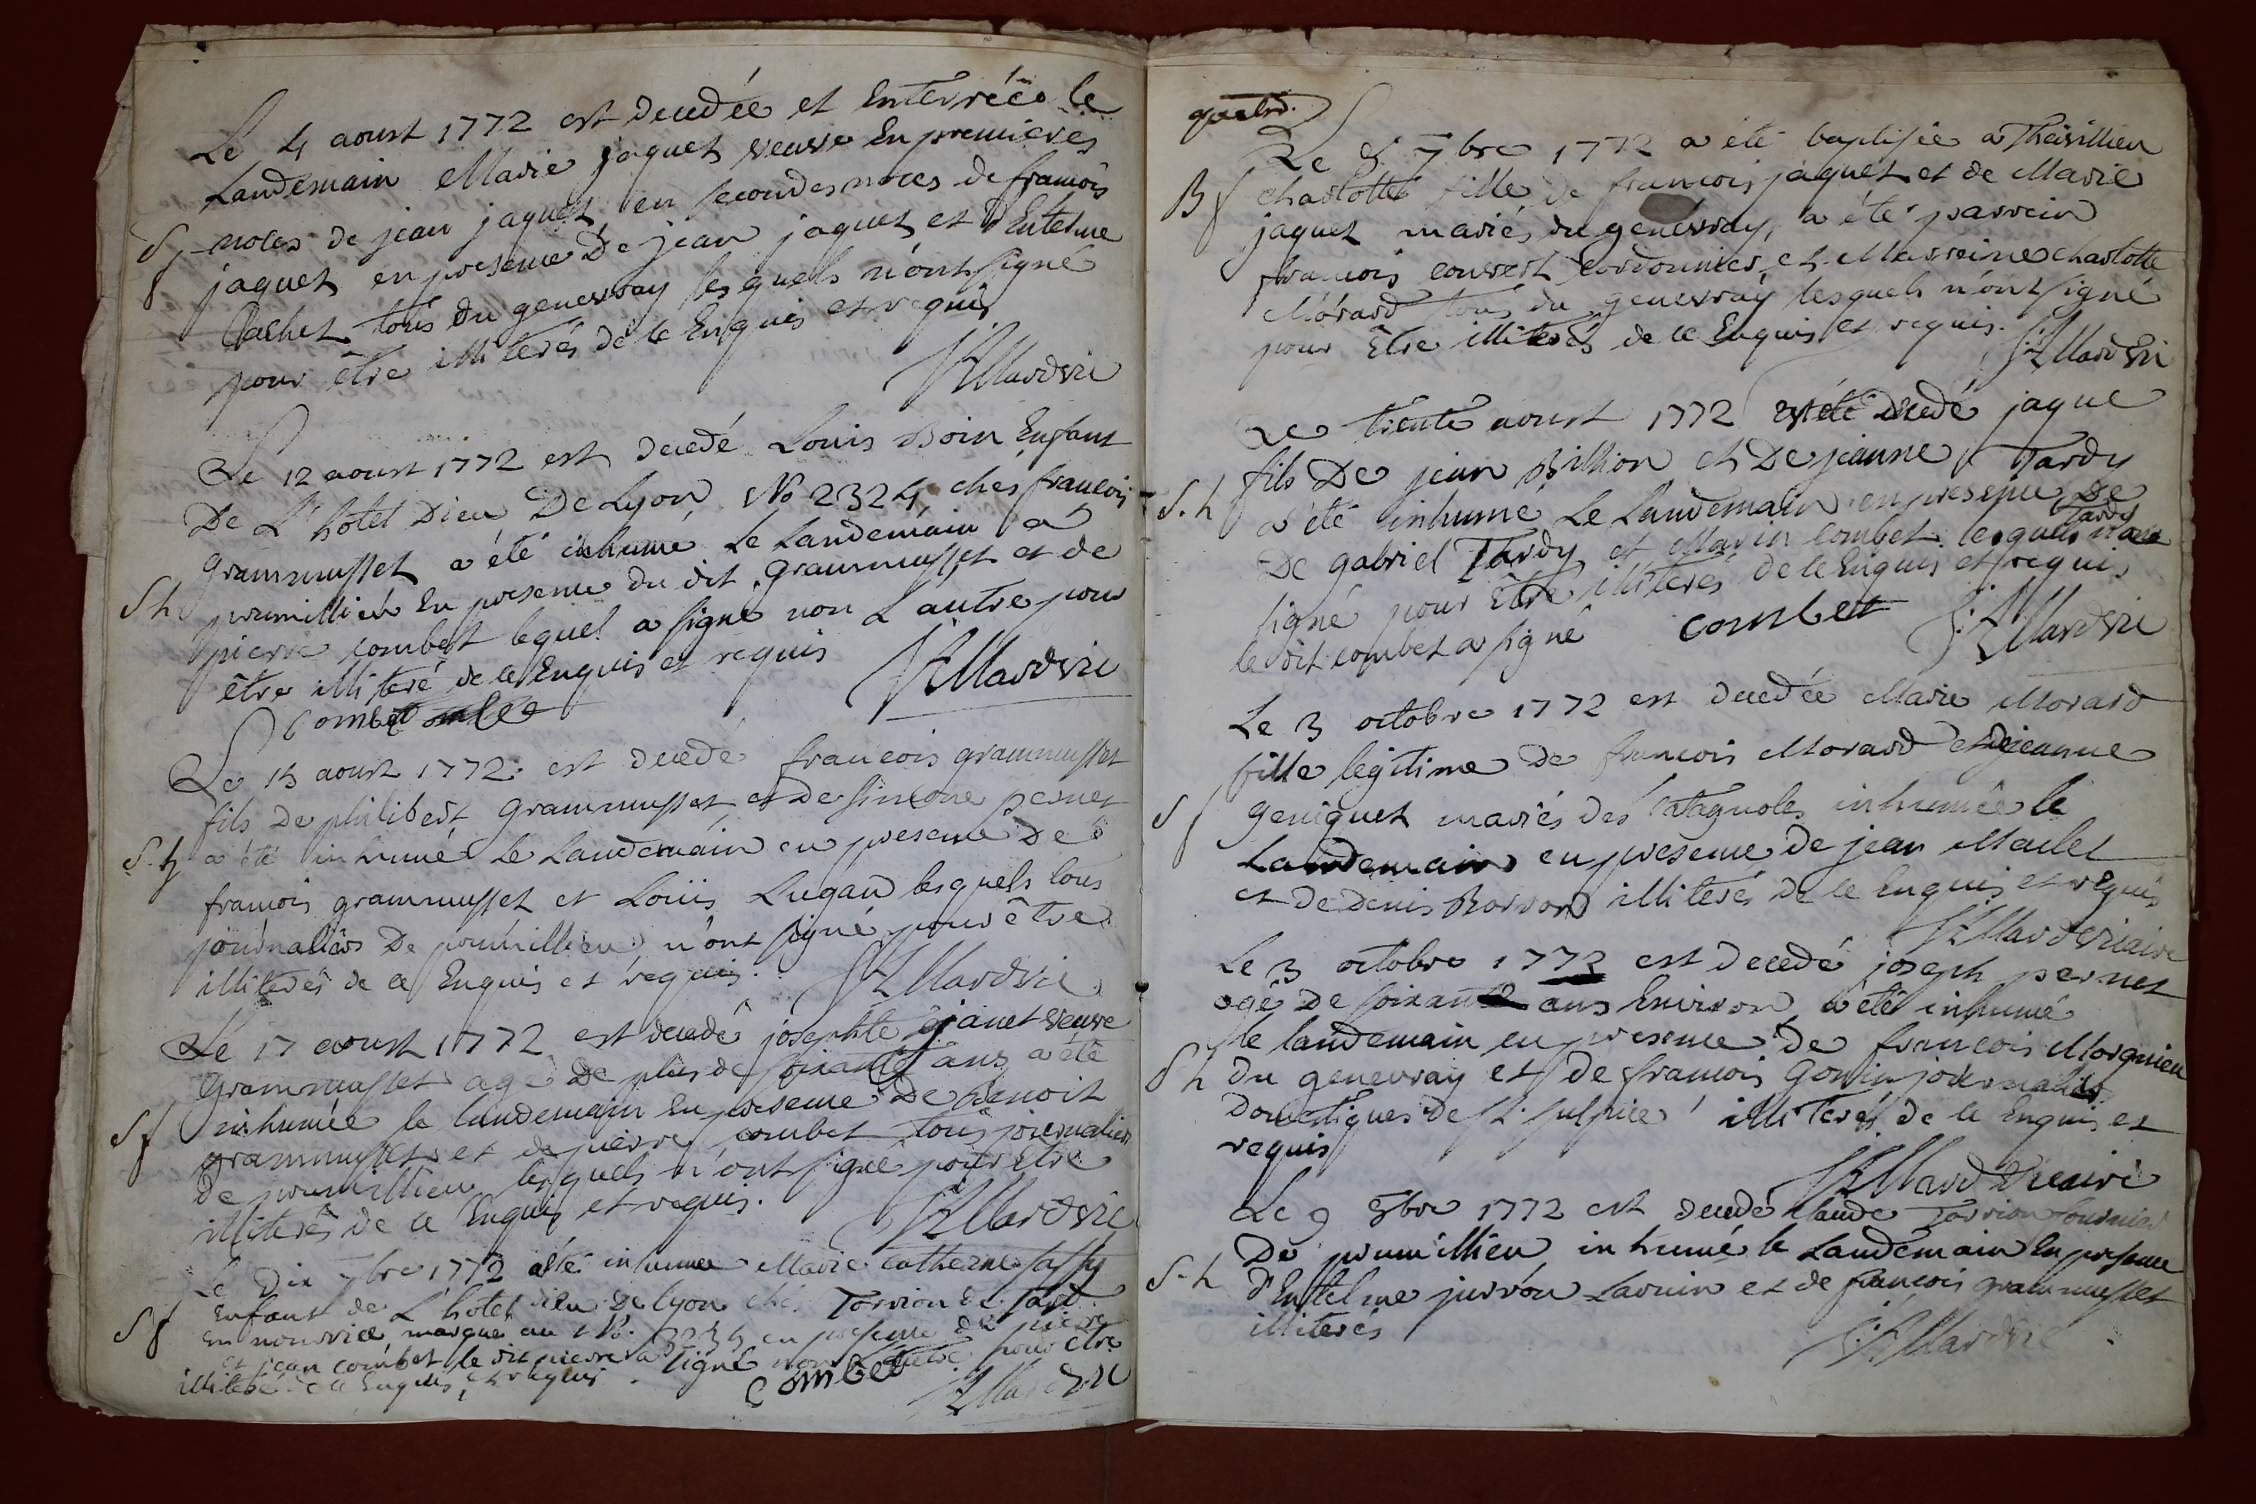 Le 4 aoust 1772 est decedée et Enterrée le
Landemain Marie jaquet veuve En premieres
Sf noces de jean jaquet en secondes noces de francois
jaquet en presence De jean jaquet et d'Entelme
tous du genevray lesquels n'ont signé
pour être illiterés de ce Enquis et requis
Mard vic
Le 12 aoust 1772 est decedé Louis Boin Enfant
De L'hotel Dieu De Lyon No 2324 chés francois
grammusset a été inhumé Le Landemain a
Sh prumillieu En presence du dit grammusset et de
pierre combet lequel a signé non L'autre pour
être illiteré de ce Enquis et requis
Mard vic
Combet
Le 15 aoust 1772 est decedé francois grammusset
fils De philibert grammusset et De simone pernet
S.h a été inhumé Le Landemain en presence De
francois grammusset et Loüis Lugan lesquels tous
journaliers De prumillieu n'ont signé pour être
illiterés de ce Enquis et requis.
Mard vic
Le 17 aoust 1772 est decedé josephte janet veuve
grammusset age De plus de soixante ans a été
Sf inhumée le landemain En presence De Benoit
grammusset et de pierre combet tous journaliers
De prumillieu lesquels n'ont signé pour être
illiterés de ce Enquis et requis.
Mard vic
Le Dix 7bre 1772 a été inhumée Marie Catherine
Sf Enfant de L'hotel dieu De Lyon chés Torrion
En nourrice marquée au No. en presence de pierre
et jean combet le dit pierre a signé non L'autre pour être
illiteré de ce Enquis et requis.
Combet
Mard vic
Le 5 7bre 1772 a été baptisée a Thezillieu
Bf charlotte fille de francois jaquet et de Marie
jaquet mariés du genevray, a été parrein
francois convert cordonnier et Marreine charlotte
Morard tous du genevray lesquels n'ont signé
pour Être illiterés de ce Enquis et requis.
Mard vic
Le trente aoust 1772 est decedé jaque
fils De jean Billion et De jeanne Tardy
S.h a été inhumé Le Landemain en presence De
De gabriel Tardy et Marin combet lesquels Tardy n'a
signé pour Être illiterés de ce Enquis et requis
le dit combet a signé combet
Mard vic
Le 3 octobre 1772 est decedée Marie Morard
fille légitime De francois Morard et De jeanne
Sf geniquet mariés des Catagnoles inhumée le
Landemain en presence de jean Maclet
et de Denis Borron illiterés de ce Enquis et requis
Mard vicaire
Le 3 octobre 1772 est decedé joseph pernet
agé De soixante ans Environ, a été inhumé
le landemain en presence De francois Morgnieu
Sh Du genevray et de francois Gonin journalier
Domestiques de St. Sulpice illiterés de ce Enquis et
requis
Mard vicaire
Le 9 8bre 1772 est decedé Claude Torrion fournier
De prumillieu inhumé le Landemain En presence
S.h d'Entelme jurron Larnin et de francois grammusset
illiterés
Mard vic